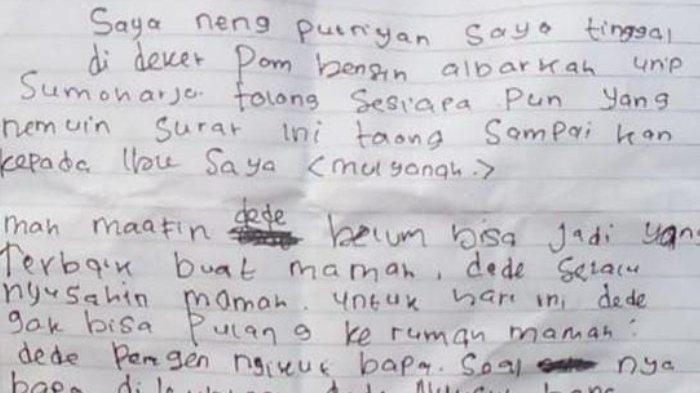 Saya neng putriyan saya tinggal
di deket Pom bensin albarkah urip
Sumoharjo. tolong Sesiapa Pun yang
nemuin surat ini taong Sampai kan
kepada Ibu Saya <mulyanah.>
mah maafin dede belum bisa jadi yang
Terbaik buat mamah, dede selalu
nyusahin mamah. untuk hari ini dede
gak bisa Pulang ke rumah mamah.
dede Pengen ngikut bapa. Soal nya
bapa